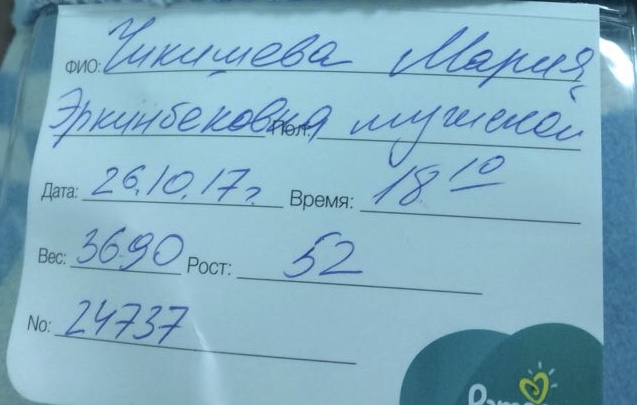 ФИО: Чикишева Мария
Эркинбековна Пол: мужской
Дата: 26.10.17г. Время: 18 10
Вес: 3690 Рост: 52
No: 24737